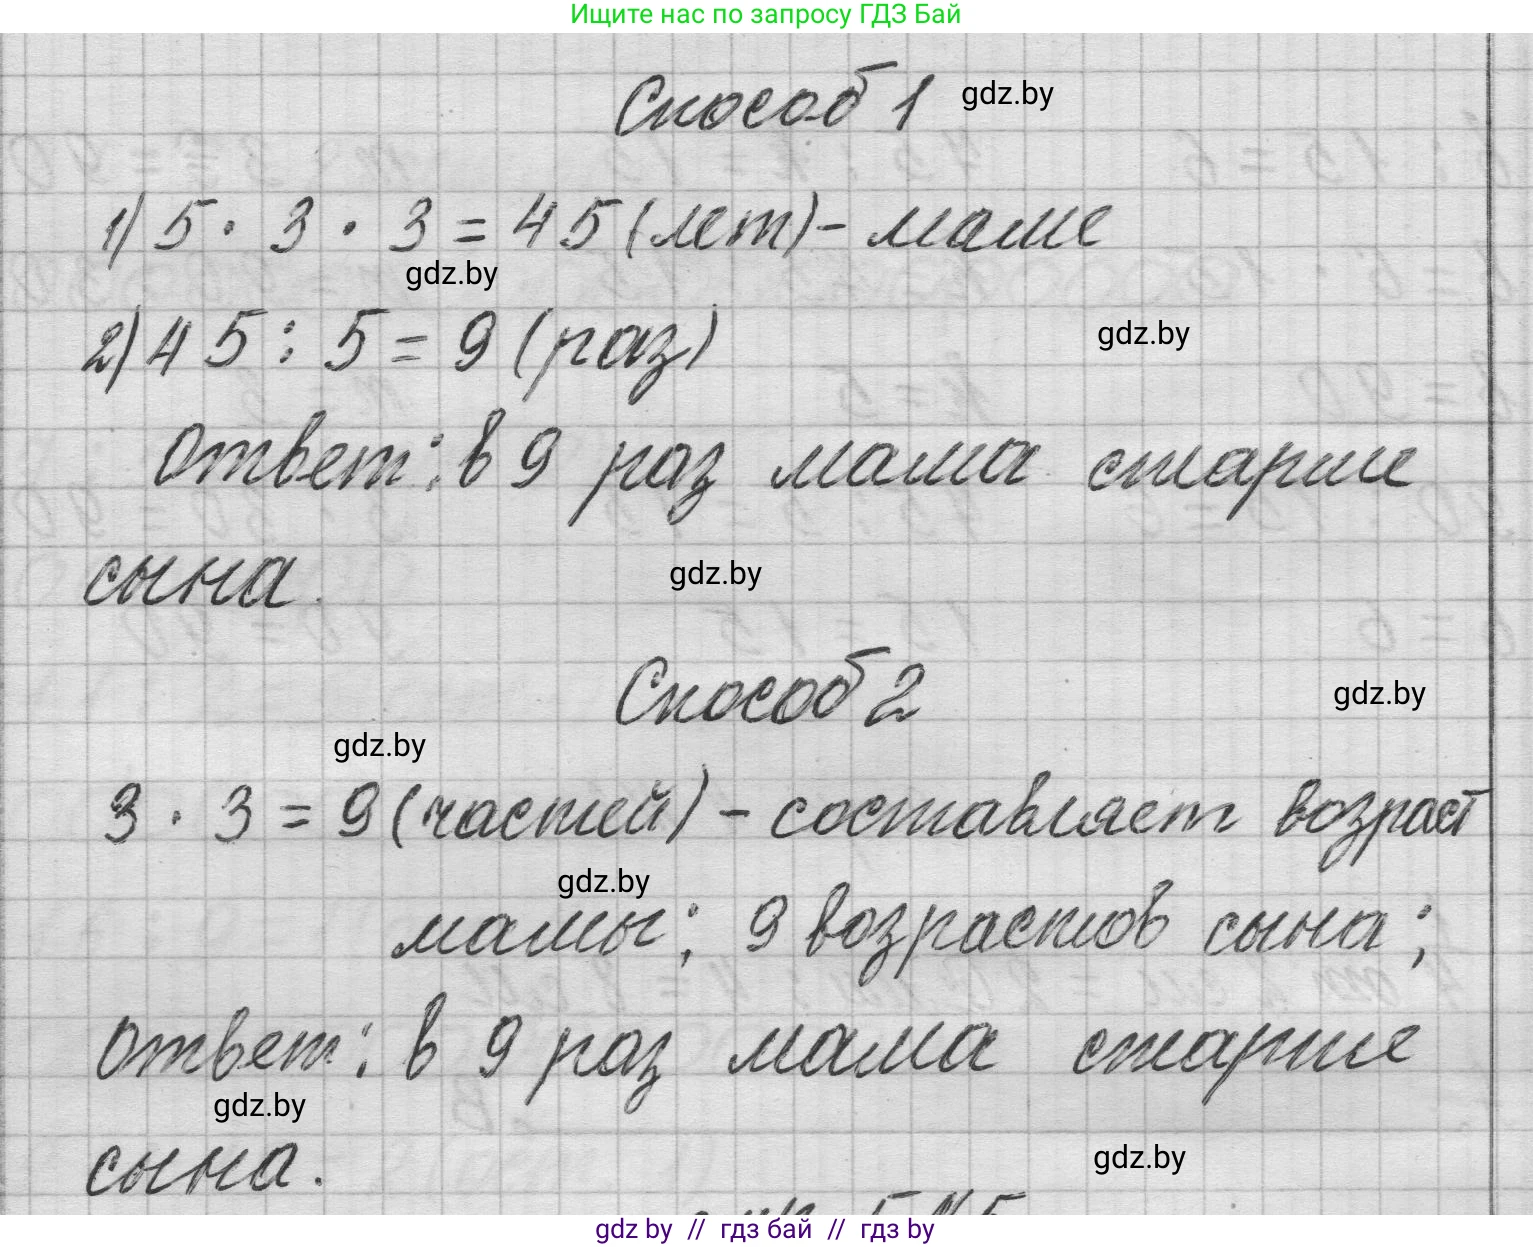 Ищите нас по запросу ГДЗ Бай
Способ 1 gdz.by
1) 5 · 3 · 3 = 45 (лет) - маме
gdz.by
2) 45 : 5 = 9 (раз) gdz.by
Ответ: в 9 раз мама старше
сына. gdz.by
Способ 2 gdz.by
gdz.by
3 · 3 = 9 (частей) - составляет возраст
gdz.by
мамы; 9 возрастов сына;
Ответ: в 9 раз мама старше
gdz.by
сына. gdz.by
gdz by // гдз бай // гдз by